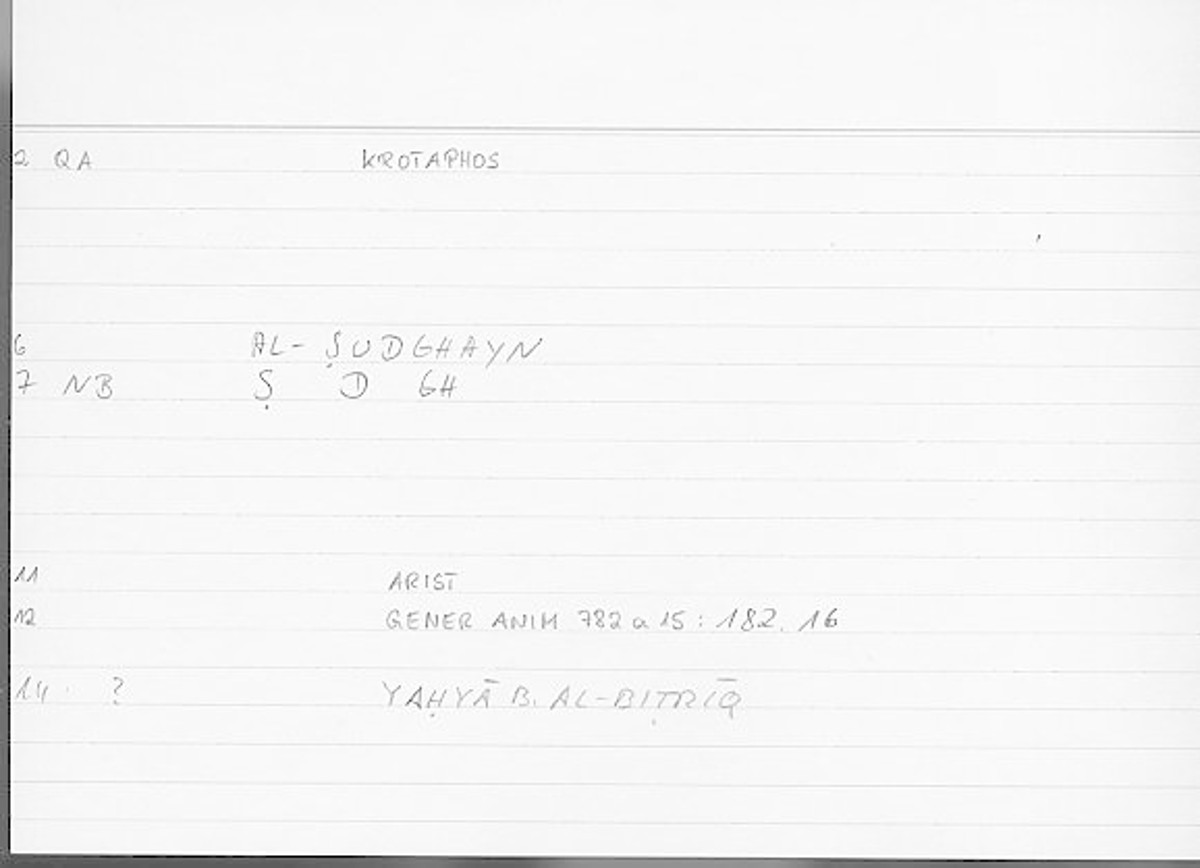 2 QA KROTAPHOS
6 AL-ṢUDGHAYN
7 NB Ṣ D GH
11 ARIST
12 GENER ANIM 782 a 15 : 182, 16
14 ? YAḤYĀ B. AL-BIṬRĪQ